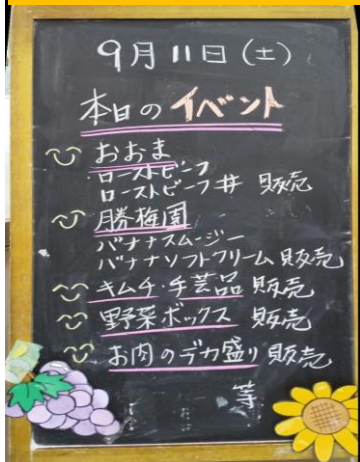 9月11日(土)
本日のイベント
おおま
ローストビーフ
ローストビーフ丼 販売
勝梅園
バナナスムージー
バナナソフトクリーム 販売
キムチ・手芸品 販売
野菜ボックス 販売
お肉のデカ盛り 販売
等